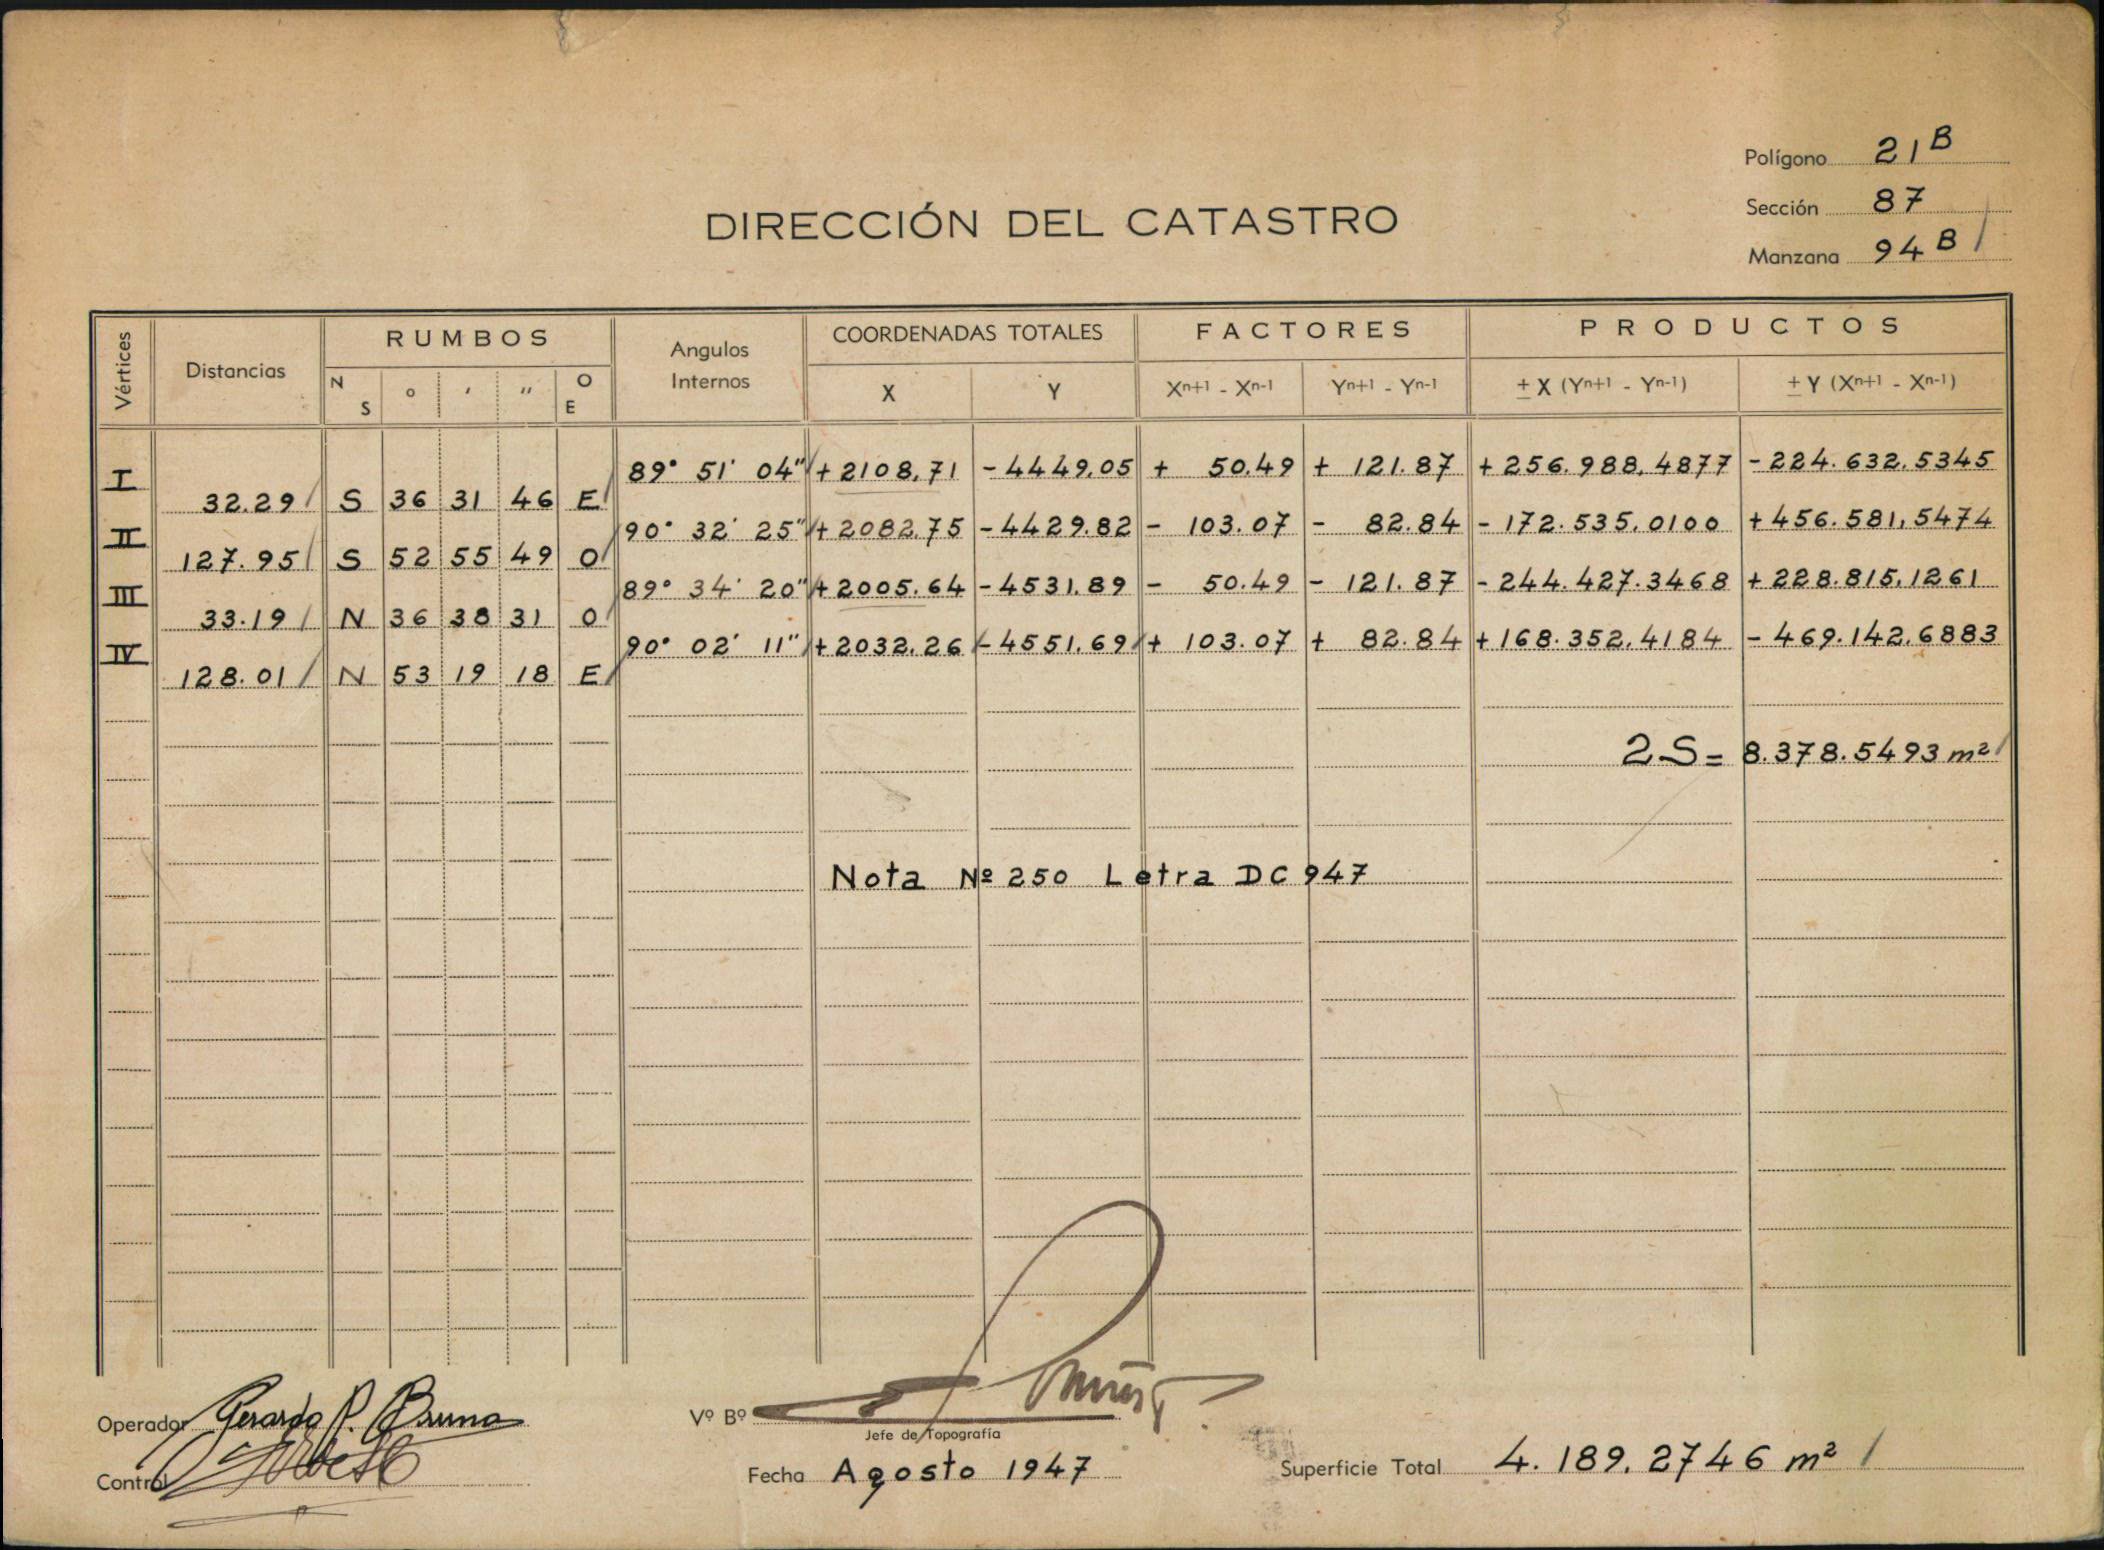 Polígono 21 B
Sección 87
DIRECCIÓN DEL CATASTRO
Manzana 94 B
Vértices Distancias RUMBOS Angulos Internos COORDENADAS TOTALES FACTORES PRODUCTOS
N S ° ' '' O E X Y Xn+1 - Xn-1 Yn+1 - Yn-1 ± X (Yn+1 - Yn-1) ± Y (Xn+1 - Xn-1)
I 89° 51' 04" +2108,71 -4449,05 + 50.49 + 121.87 +256.988,4877 -224.632,5345
32.29 S 36 31 46 E
II 90° 32' 25" +2082,75 -4429.82 - 103.07 - 82.84 -172.535,0100 +456.581,5474
127.95 S 52 55 49 O
III 89° 34' 20" +2005.64 -4531.89 - 50.49 - 121.87 -244.427.3468 +228.815,1261
33.19 N 36 38 31 O
IV 90° 02' 11" +2032,26 -4551,69 + 103.07 + 82.84 +168.352,4184 -469.142,6883
128.01 N 53 19 18 E
2S= 8.378.5493 m²
Nota Nº 250 Letra DC 947
Operador Gerardo P. Bruna
Vº Bº
Jefe de Topografía
Control
Fecha Agosto 1947
Superficie Total 4.189,2746 m²